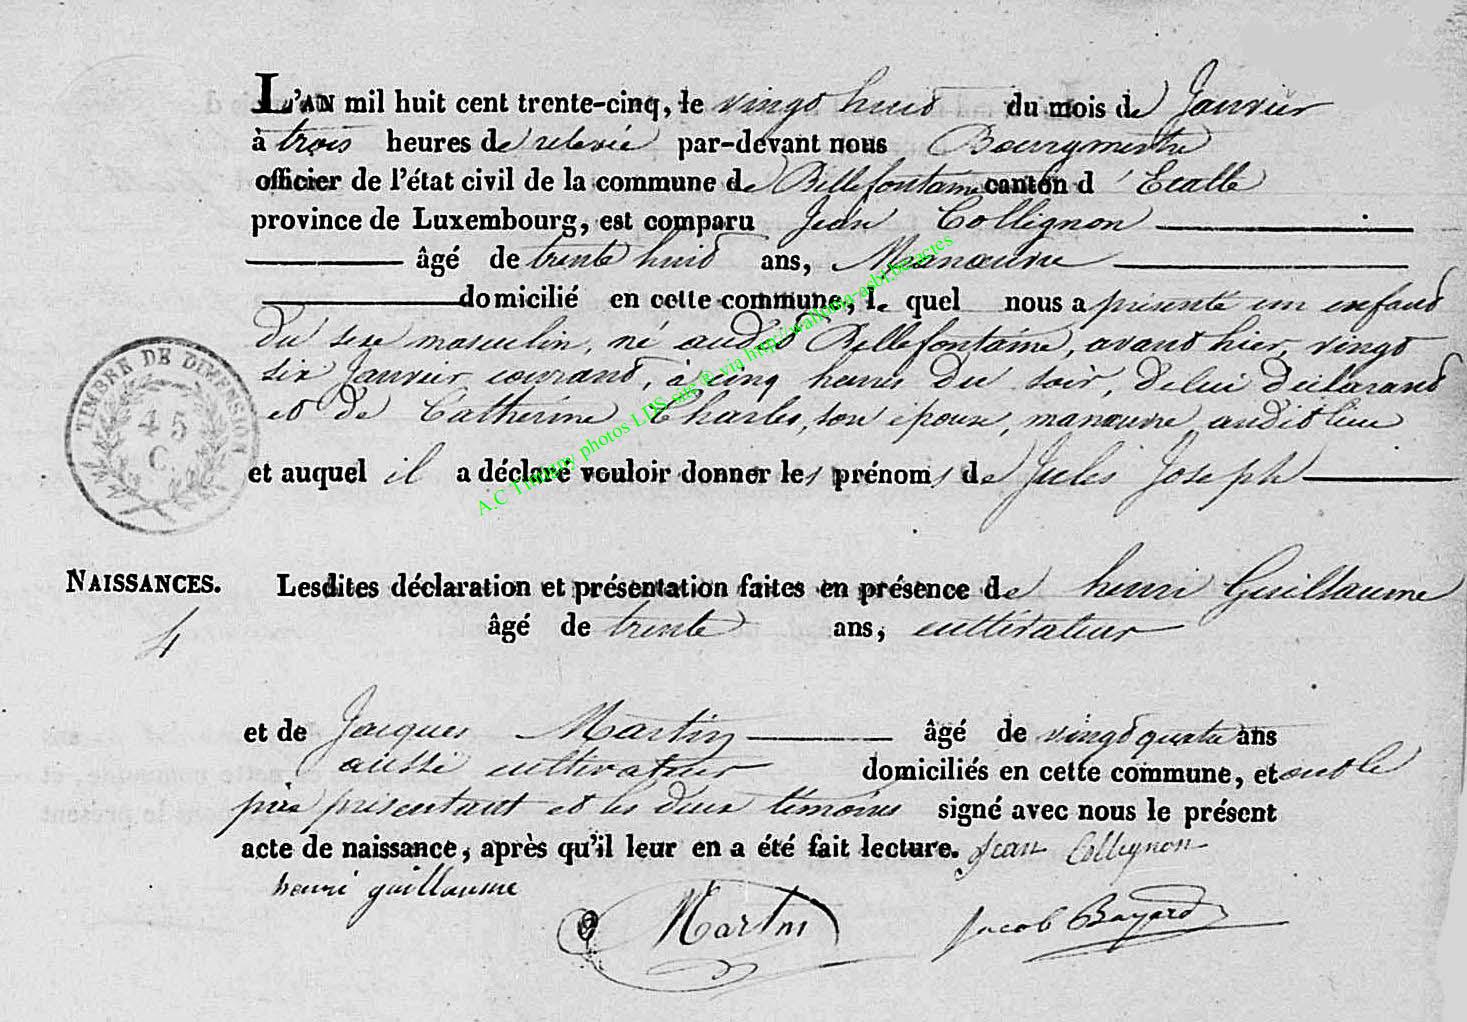 L'AN mil huit cent trente-cinq, le vingt huit du mois de Janvier
à trois heures de relevée par-devant nous Bourgmestre
officier de l'état civil de la commune de Bellefontaine canton d'Etalle
province de Luxembourg, est comparu Jean Collignon
âgé de trente huit ans, Manœuvre
domicilié en cette commune, le quel nous a présenté un enfant
du sexe masculin, né audit Bellefontaine, avant hier, vingt
six Janvier courant, à cinq heures du soir, de lui déclarant
et de Catherine Charles, son épouse, manœuvre, audit lieu
et auquel il a déclaré vouloir donner les prénoms de Jules Joseph
TIMBRE DE DIMENSION
45
C.
A.C Tintigny photos LDS site ® via http://wallonia-asbl.be/actes
NAISSANCES.
4
Lesdites déclaration et présentation faites en présence de henri Guillaume
âgé de trente ans, cultivateur
et de Jacques Martin âgé de vingt quatre ans
aussi cultivateur domiciliés en cette commune, et ont le
père présentant et les deux témoins signé avec nous le présent
acte de naissance, après qu'il leur en a été fait lecture. Jean Collignon
henri guillaume
Martin Jacob Bayard